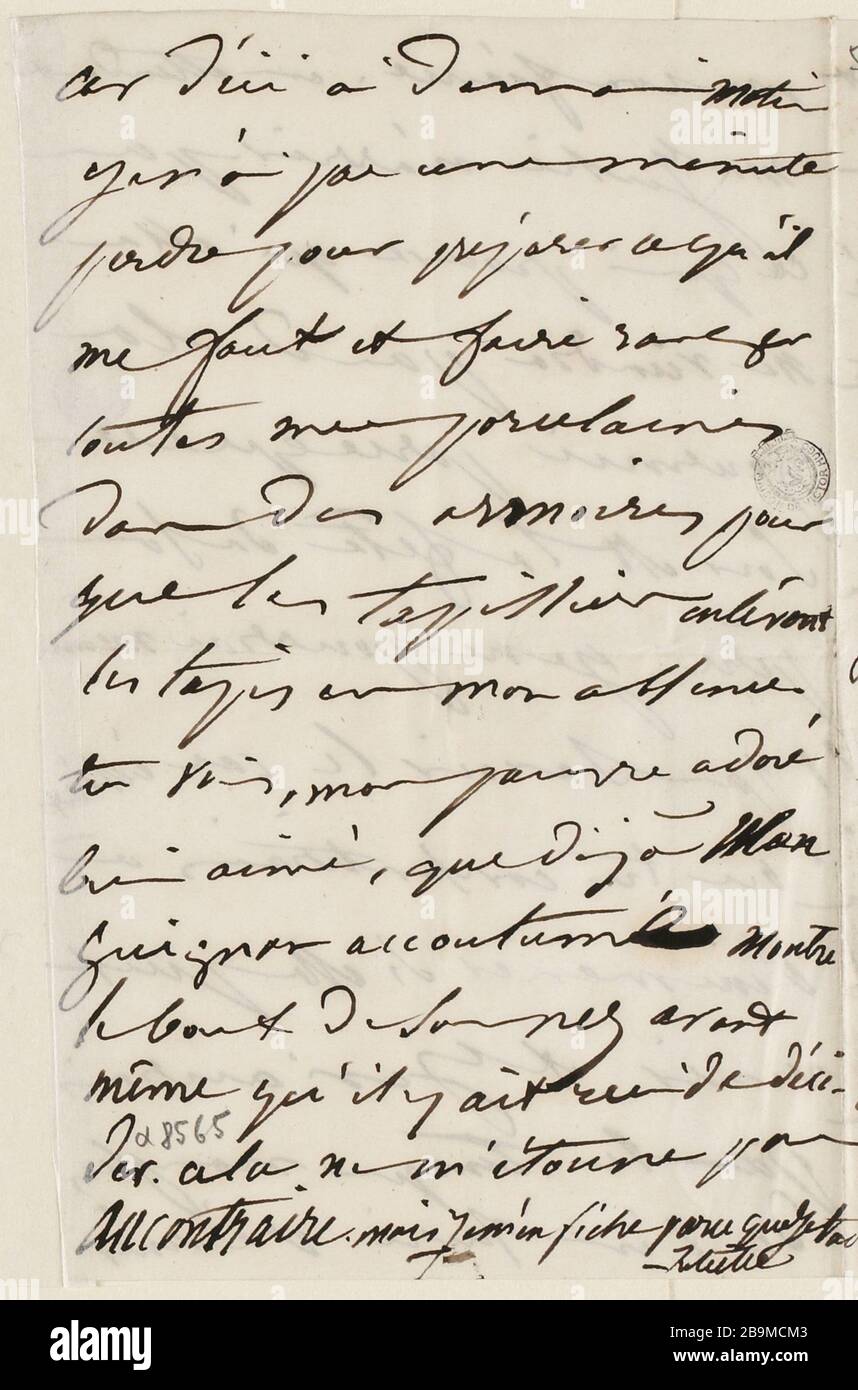 car d'ici à demain matin
je n'ai pas une minute
perdre pour préparer ce qu'il
me faut et faire ranger
toutes mes porcelaines
dans des armoires pour
que les tapissiers enlèvent
les tapis en mon absence
tu vois, mon pauvre adoré
bien aimé, que déjà Mon
guignon accoutumé montre
le bout de son nez avant
même qu'il y ait rien de déci-
der. cela ne m'étonne pas
au contraire. mais je m'en fiche parce que je t'ad
Juliette
α 8565
alamy
Image ID: 2B9MCM3
www.alamy.com